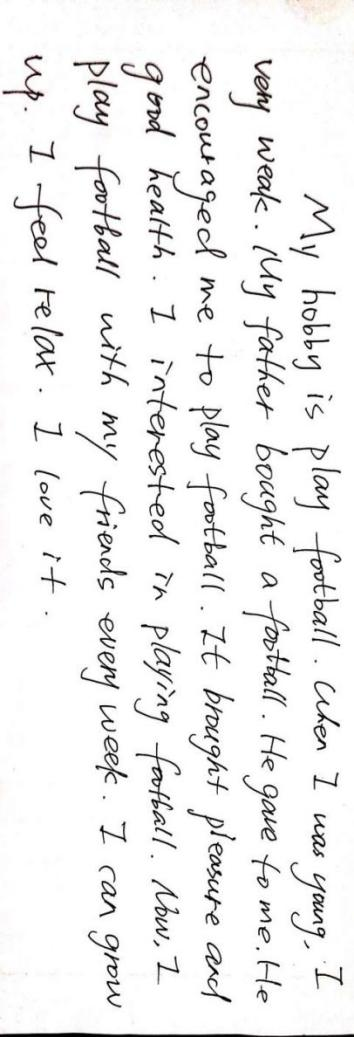 My hobby is play football. When I was young, I
very weak. My father bought a football. He gave to me. He
encouraged me to play football. It brought pleasure and
good health. I interested in playing football. Now, I
play football with my friends every week. I can grow
up. I feel relax. I love it.